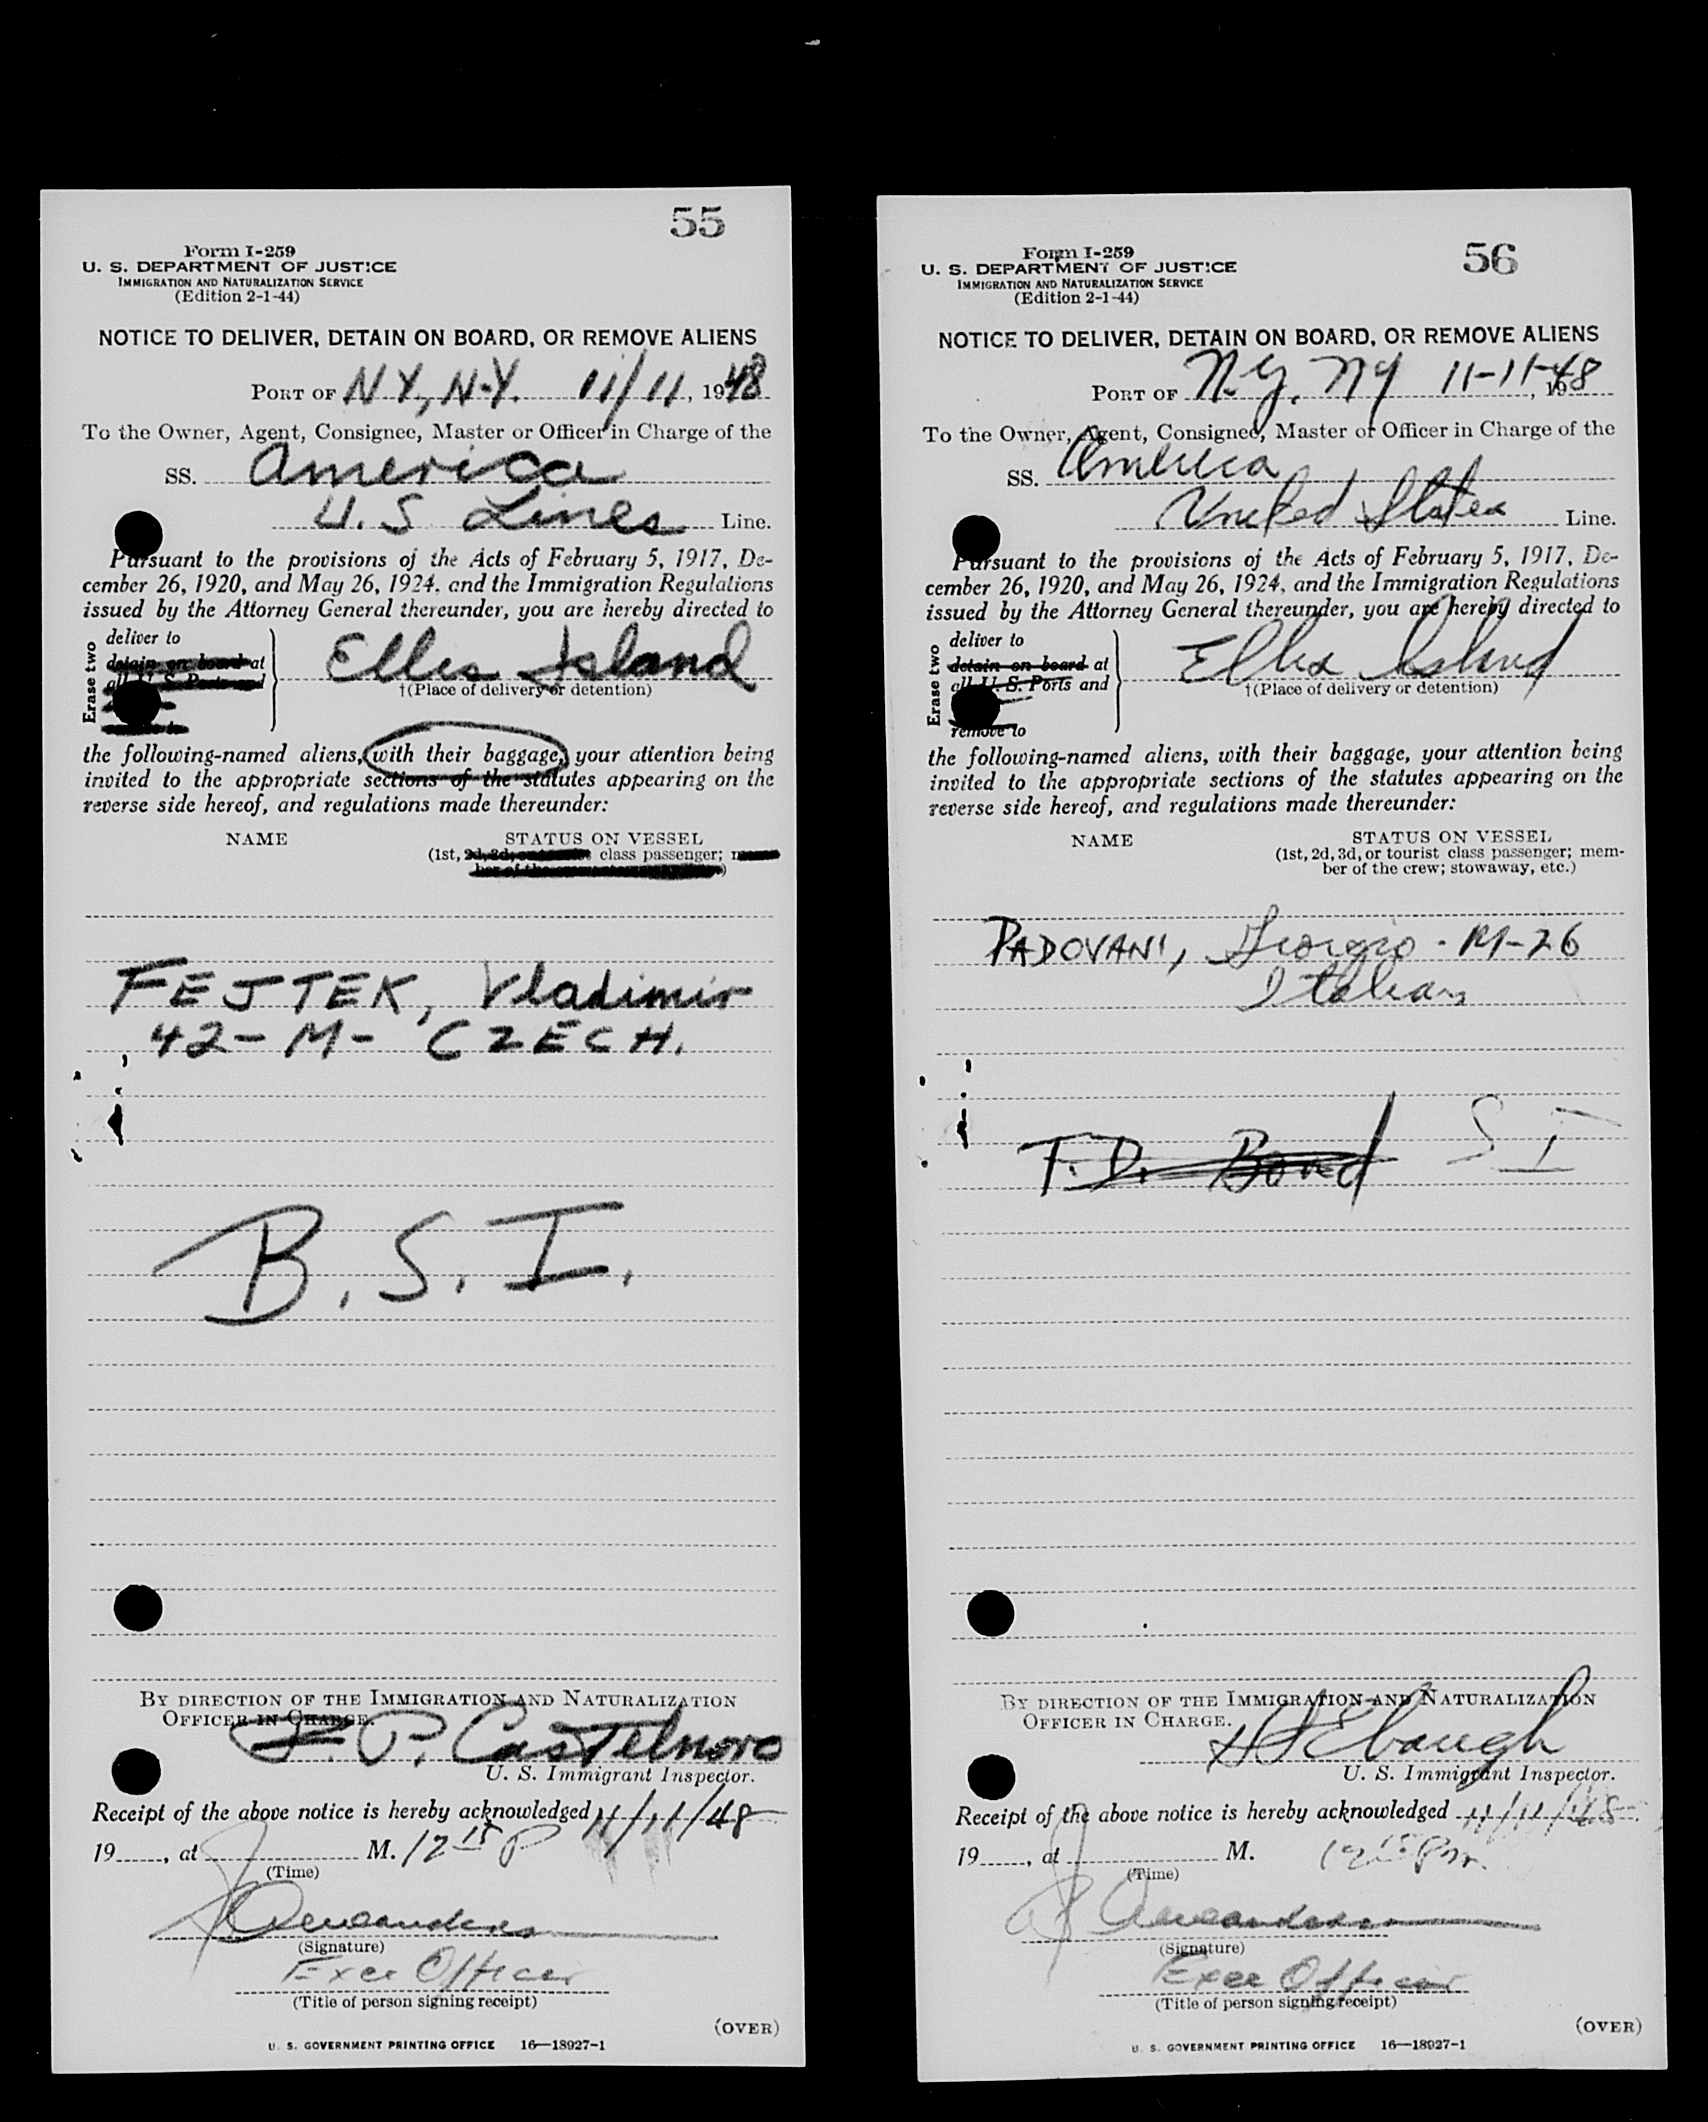 55
Form I-259
U. S. DEPARTMENT OF JUSTICE
IMMIGRATION AND NATURALIZATION SERVICE
(Edition 2-1-44)
NOTICE TO DELIVER, DETAIN ON BOARD, OR REMOVE ALIENS
PORT OF N.Y., N.Y. 11/11, 1948
To the Owner, Agent, Consignee, Master or Officer in Charge of the
SS. America
U.S Lines Line.
Pursuant to the provisions of the Acts of February 5, 1917, De-
cember 26, 1920, and May 26, 1924, and the Immigration Regulations
issued by the Attorney General thereunder, you are hereby directed to
Erase two
deliver to
detain on board at
all U. S. Ports and
Ellis Island
†(Place of delivery or detention)
the following-named aliens, with their baggage, your attention being
invited to the appropriate sections of the statutes appearing on the
reverse side hereof, and regulations made thereunder:
NAME STATUS ON VESSEL
(1st, 2d, 3d, class passenger;
FEJTEK, Vladimir
42-M- CZECH.
B.S.I.
BY DIRECTION OF THE IMMIGRATION AND NATURALIZATION
OFFICER IN CHARGE.
P. Castelnovo
U. S. Immigrant Inspector.
Receipt of the above notice is hereby acknowledged 11/11/48
19 , at M. 12 15 P
(Time)
(Signature)
Exec Officer
(Title of person signing receipt)
(OVER)
U. S. GOVERNMENT PRINTING OFFICE 16—18927-1
56
Form I-259
U. S. DEPARTMENT OF JUSTICE
IMMIGRATION AND NATURALIZATION SERVICE
(Edition 2-1-44)
NOTICE TO DELIVER, DETAIN ON BOARD, OR REMOVE ALIENS
PORT OF N.Y, NY 11-11-48, 19
To the Owner, Agent, Consignee, Master or Officer in Charge of the
SS. America
United States Line.
Pursuant to the provisions of the Acts of February 5, 1917, De-
cember 26, 1920, and May 26, 1924, and the Immigration Regulations
issued by the Attorney General thereunder, you are hereby directed to
Erase two
deliver to
detain on board at
all U. S. Ports and
remove to
Ellis Island
†(Place of delivery or detention)
the following-named aliens, with their baggage, your attention being
invited to the appropriate sections of the statutes appearing on the
reverse side hereof, and regulations made thereunder:
NAME STATUS ON VESSEL
(1st, 2d, 3d, or tourist class passenger; mem-
ber of the crew; stowaway, etc.)
PADOVANI, Giorgio - M-26
Italian
T.D. Bond S I
BY DIRECTION OF THE IMMIGRATION AND NATURALIZATION
OFFICER IN CHARGE.
Ebaugh
U. S. Immigrant Inspector.
Receipt of the above notice is hereby acknowledged 11/11/48
19 , at M. 12 15 Pm.
(Time)
(Signature)
Exec Officer
(Title of person signing receipt)
(OVER)
U. S. GOVERNMENT PRINTING OFFICE 16—18927-1